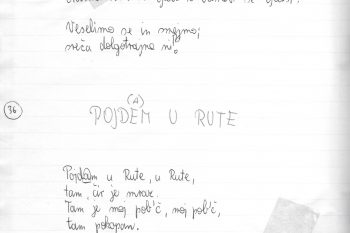 Veselimo se in smejmo,
sreča dolgotrajna ni.
36
(A)
POJDEM U RUTE
Pojd@m u Rute, u Rute,
tam, čir je mraz.
Tam je moj pob'č, moj pob'č,
tam pokopan.